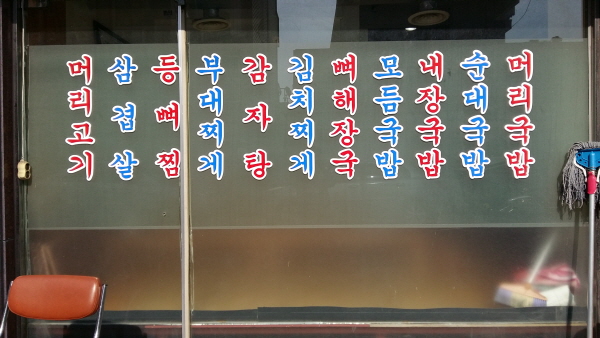 머리고기
삼겹살
등뼈찜
부대찌게
감자탕
김치찌게
뼈해장국
모듬국밥
내장국밥
순대국밥
머리국밥